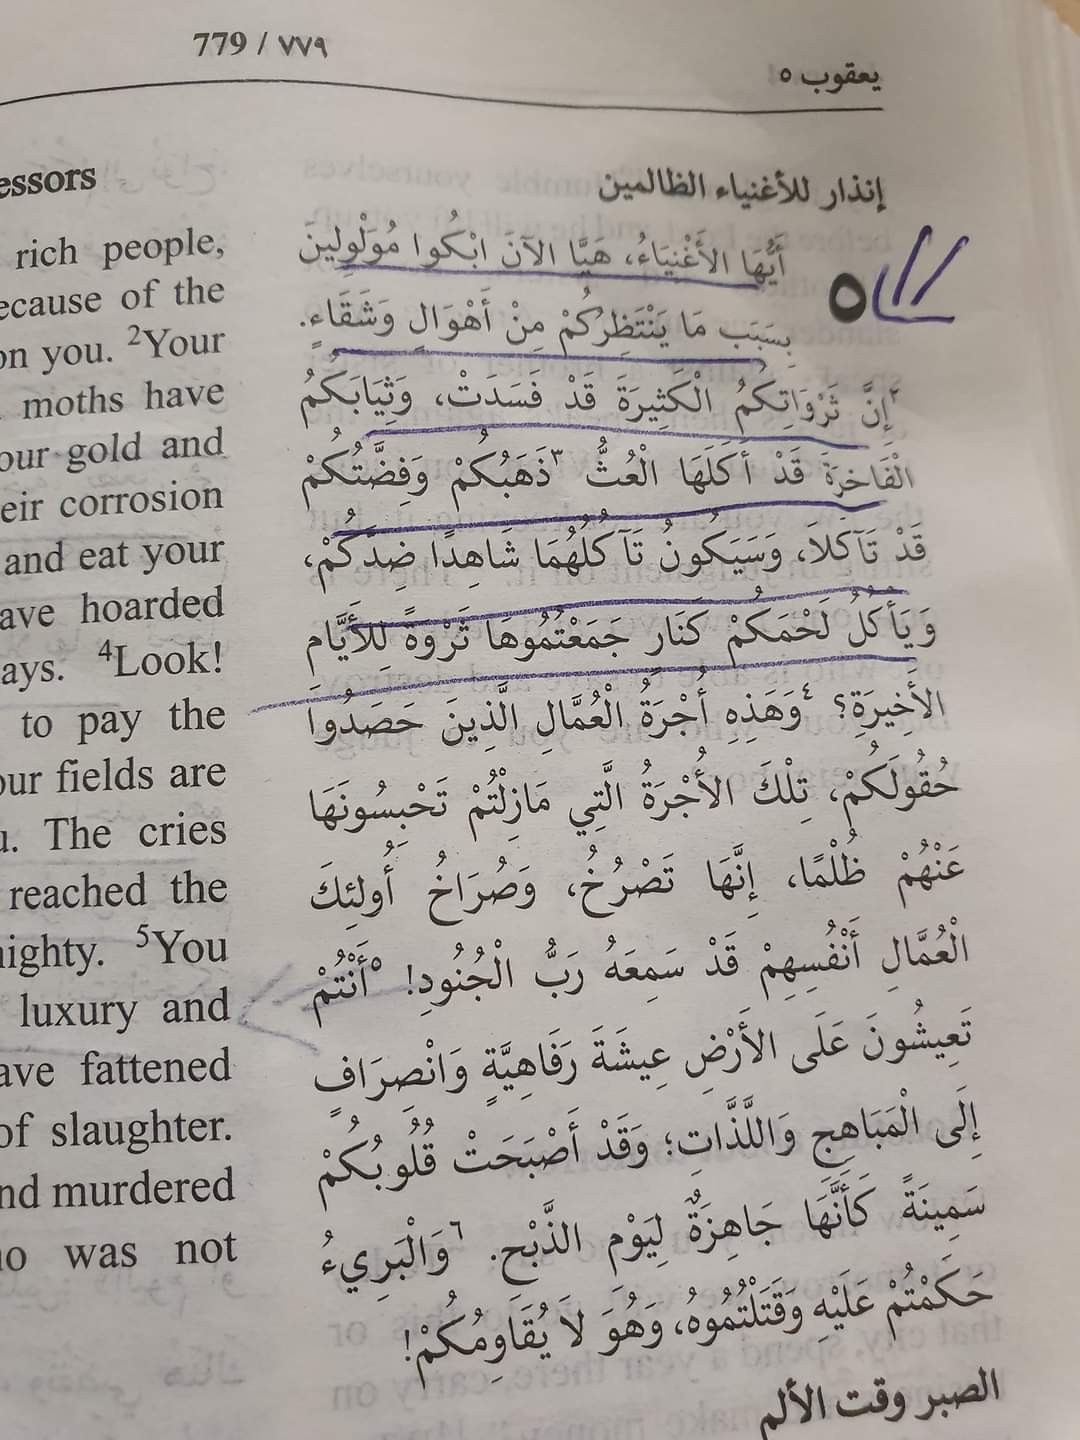 779 / ٧٧٩
يعقوب ٥
essors
rich people,
ecause of the
on you. ²Your
moths have
our gold and
eir corrosion
and eat your
ave hoarded
ays. ⁴Look!
to pay the
our fields are
u. The cries
reached the
nighty. ⁵You
luxury and
ave fattened
of slaughter.
nd murdered
no was not
إنذار للأغنياء الظالمين
٥ أَيُّهَا الأَغْنِيَاءُ، هَيَّا الآنَ ابْكُوا مُوَلْوِلِينَ
بِسَبَبِ مَا يَنْتَظِرُكُمْ مِنْ أَهْوَالٍ وَشَقَاءٍ.
٢إِنَّ ثَرْوَاتِكُمُ الْكَثِيرَةَ قَدْ فَسَدَتْ، وَثِيَابَكُمُ
الْفَاخِرَةَ قَدْ أَكَلَهَا الْعُثُّ ٣ذَهَبُكُمْ وَفِضَّتُكُمْ
قَدْ تَآكَلاَ، وَسَيَكُونُ تَآكُلُهُمَا شَاهِدًا ضِدَّكُمْ،
وَيَأْكُلُ لَحْمَكُمْ كَنَارٍ جَمَعْتُمُوهَا ثَرْوَةً لِلأَيَّامِ
الأَخِيرَةِ؟ ٤وَهَذِهِ أُجْرَةُ الْعُمَّالِ الَّذِينَ حَصَدُوا
حُقُولَكُمْ، تِلْكَ الأُجْرَةُ الَّتِي مَازِلْتُمْ تَحْبِسُونَهَا
عَنْهُمْ ظُلْمًا، إِنَّهَا تَصْرُخُ، وَصُرَاخُ أُولئِكَ
الْعُمَّالِ أَنْفُسِهِمْ قَدْ سَمِعَهُ رَبُّ الْجُنُودِ! ٥أَنْتُمْ
تَعِيشُونَ عَلَى الأَرْضِ عِيشَةَ رَفَاهِيَّةٍ وَانْصِرَافٍ
إِلَى الْمَبَاهِجِ وَاللَّذَّاتِ؛ وَقَدْ أَصْبَحَتْ قُلُوبُكُمْ
سَمِينَةً كَأَنَّهَا جَاهِزَةٌ لِيَوْمِ الذَّبْحِ. ٦وَالْبَرِيءُ
حَكَمْتُمْ عَلَيْهِ وَقَتَلْتُمُوهُ، وَهُوَ لاَ يُقَاوِمُكُمْ!
الصبر وقت الألم